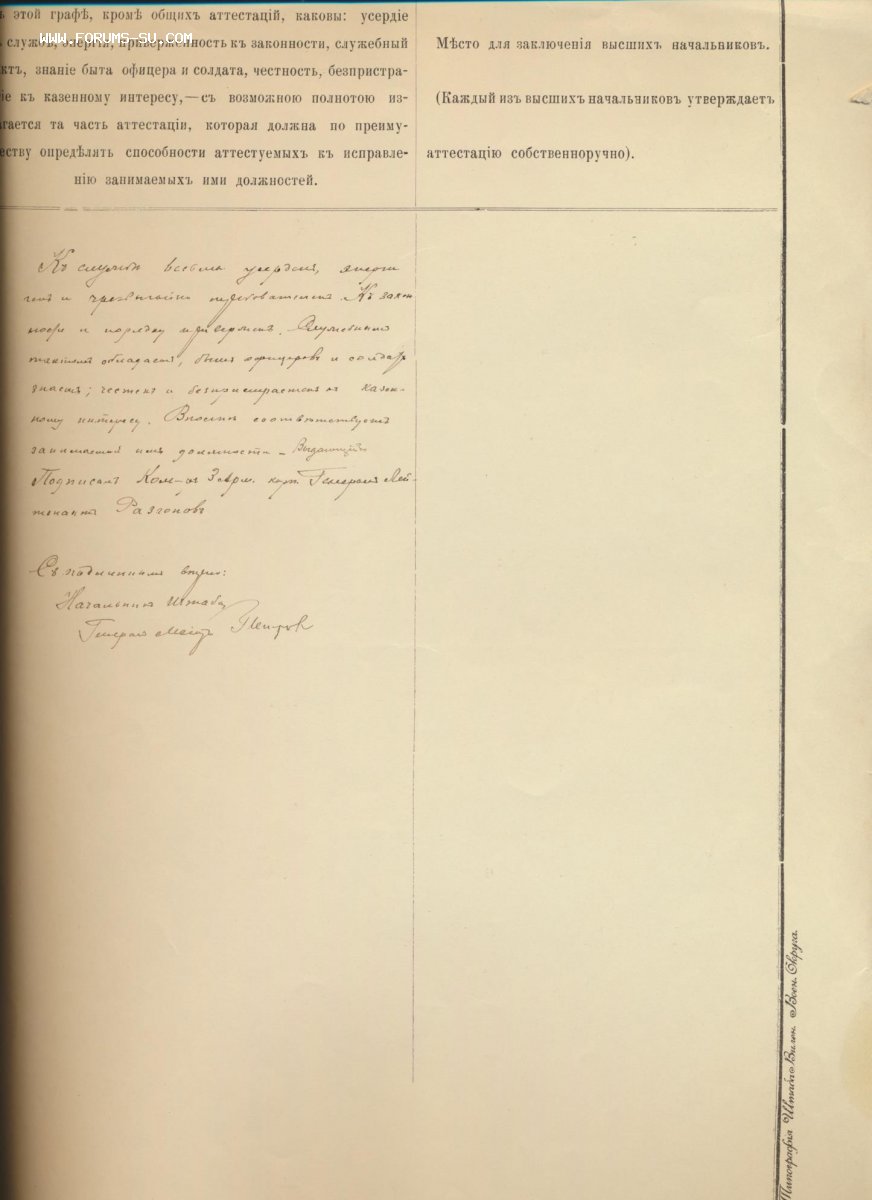 ъ этой графѣ, кромѣ общихъ аттестацій, каковы: усердіе
службѣ, энергія, приверженность къ законности, служебный
ктъ, знаніе быта офицера и солдата, честность, безпристра-
іе къ казенному интересу,—съ возможною полнотою из-
гается та часть аттестаціи, которая должна по преиму-
еству опредѣлять способности аттестуемыхъ къ исправле-
нію занимаемыхъ ими должностей.
WWW.FORUMS-SU.COM
Мѣсто для заключенія высшихъ начальниковъ.
(Каждый изъ высшихъ начальниковъ утверждаетъ
аттестацію собственноручно).
Къ службѣ весьма усерденъ, энерги
ченъ и чрезвычайно требователенъ. Къ закон
ности и порядку приверженъ. Служебнымъ
тактомъ обладаетъ, бытъ офицеровъ и солдатъ
знаетъ; честенъ и безпристрастенъ къ казен-
ному интересу. Вполнѣ соотвѣтствуетъ
занимаемой имъ должности – Выдающійся
Подписалъ Ком-ръ 3 арм. корп. Генералъ Лей-
тенантъ Разгоновъ
Съ подлиннымъ вѣрно:
Начальникъ Штаба
Генералъ Маіоръ
Типографія Штаба Вилен. Воен. Округа.